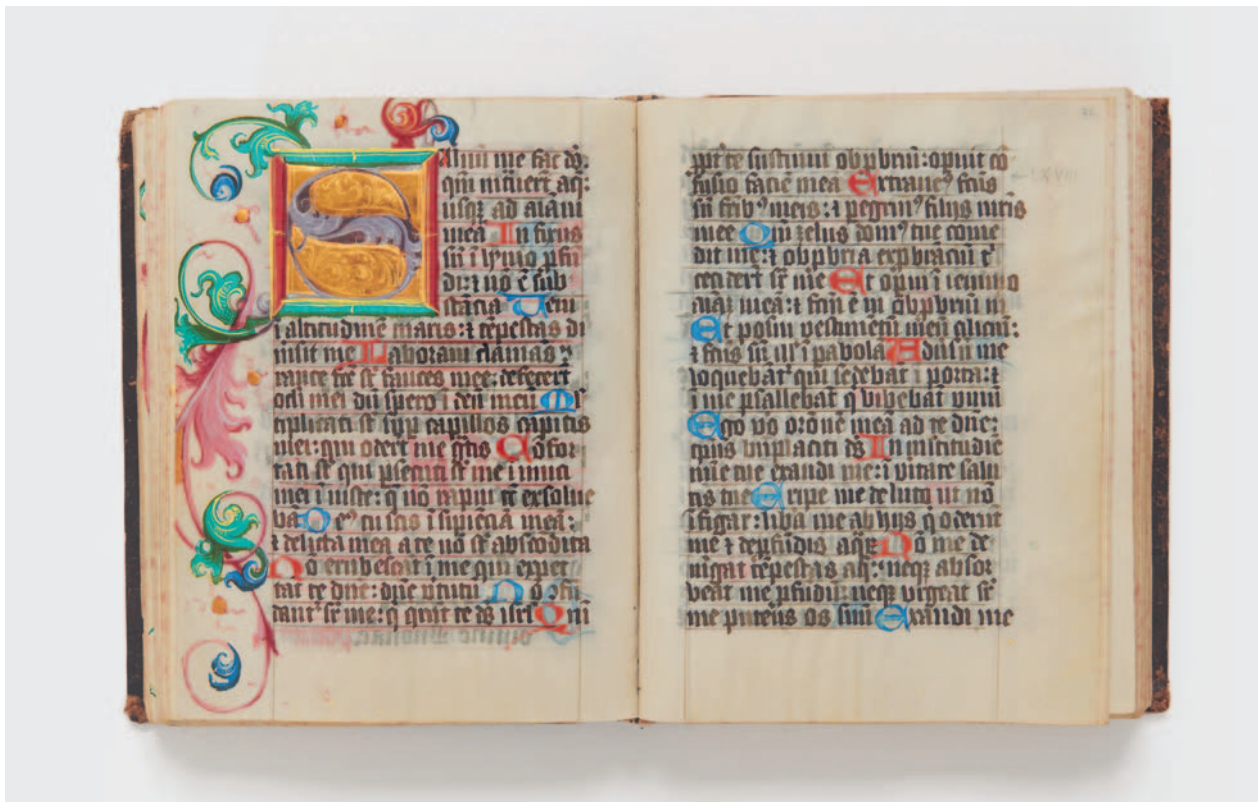 Saluū me fac dō.
qm̄ intᷓuert̄ aq̄:
usqꝫ ad aīam
meā In fixus
sū ī lymo ꝓfū
di: ⁊ nō ē sub
stācia Veni
ī altitudinē maris: ⁊ tēpestas di
misit me Laboraui clamās
rauce fc̄e st̄ fauces mee: defecert̄
ocl̄i mei dū spero ī deū meū Ml̄
tiplicati st̄ suꝑ capillos capitis
mei: qui odert̄ me gͣtis Cōfor
tati st̄ qui ꝑsecuti st̄ me īimici
mei īiuste: q̄ nō rapui tc̄ exsolue
bā De⁹ tu scis īsipiēciā meā:
⁊ delicta mea a te nō st̄ abscōdita
Nō erubescāt ī me qui expec
tāt te dn̄e: dn̄e v̄tutū Nō cōfū
dant͛ sr̄ me: q̄ querūt te ds̄ isrl̄ Qm̄
ꝓpt̄ te sustinui obꝓbriū: opuit cō
fusio faciē meā Extrane⁹ fc̄us
sū frīb⁹ meis: ⁊ pegrin⁹ filijs mr̄is
mee Qm̄ zelus dom⁹ tue come
dit me: ⁊ obꝓbria exꝓbraciū t̄
cecidert̄ sr̄ me Et opui ī ieiunio
aīaꝫ meā: ⁊ fc̄m ē m̄ obꝓbriū m̄
Et posui vestimētū meū ciliciū:
⁊ fc̄us sū ill̄ ī ꝑabolā Adūsū me
loquebāt͛ qui sedebāt ī porta: ⁊
ī me psallebāt q̄ bibebāt vinū
Ego v̄o or̄onē meā ad te dn̄e:
tp̄us bn̄placiti ds̄ In mltitudīe
mīe tue exaudi me: ī v̄itate salu
tis tue Eripe me de luto ut nō
īfigar: libᷓa me ab hijs q̄ odert̄
me ⁊ de ꝓfūdis aqᷓꝫ Nō me de
mgat tēpestas aq̄: neqꝫ absor
beat me ꝓfūdū: neqꝫ vrgeat sr̄
me puteus os suū Exaudi me